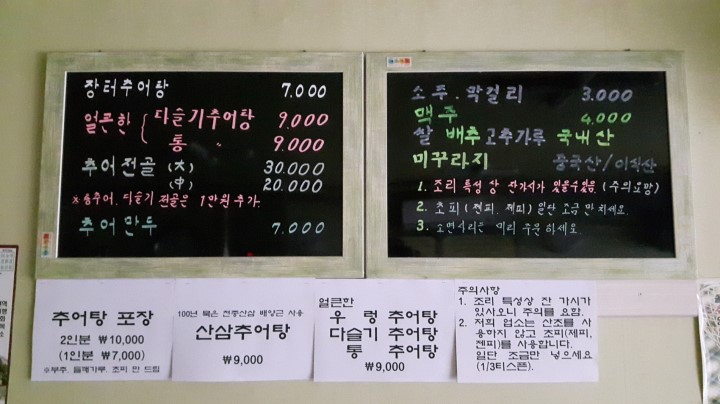 장터추어탕 7.000
얼큰한 { 다슬기추어탕 9.000
통 〃 9.000
추어전골 (大) 30.000
(中) 20.000
※통추어, 다슬기 전골은 1만원 추가.
추어만두 7.000
소주. 막걸리 3.000
맥주 4.000
쌀 배추 고추가루 국내산
미꾸라지 중국산/이직산
1. 조리 특성상 잔가시가 있을수있음. (주의요망)
2. 초피 (젠피. 제피) 일단 조금만 치세요.
3. 소면사리는 미리 주문하세요.
추어탕 포장
2인분 ₩10,000
(1인분 ₩7,000)
※부추, 들깨가루, 초피 안 드림
100년 묵은 천종산삼 배양근 사용
산삼추어탕
₩9,000
얼큰한
우렁 추어탕
다슬기 추어탕
통 추어탕
₩9,000
주의사항
1. 조리 특성상 잔 가시가
있사오니 주의를 요함.
2. 저희 업소는 산초를 사
용하지 않고 초피(제피,
젠피)를 사용합니다.
일단 조금만 넣으세요
(1/3티스픈).